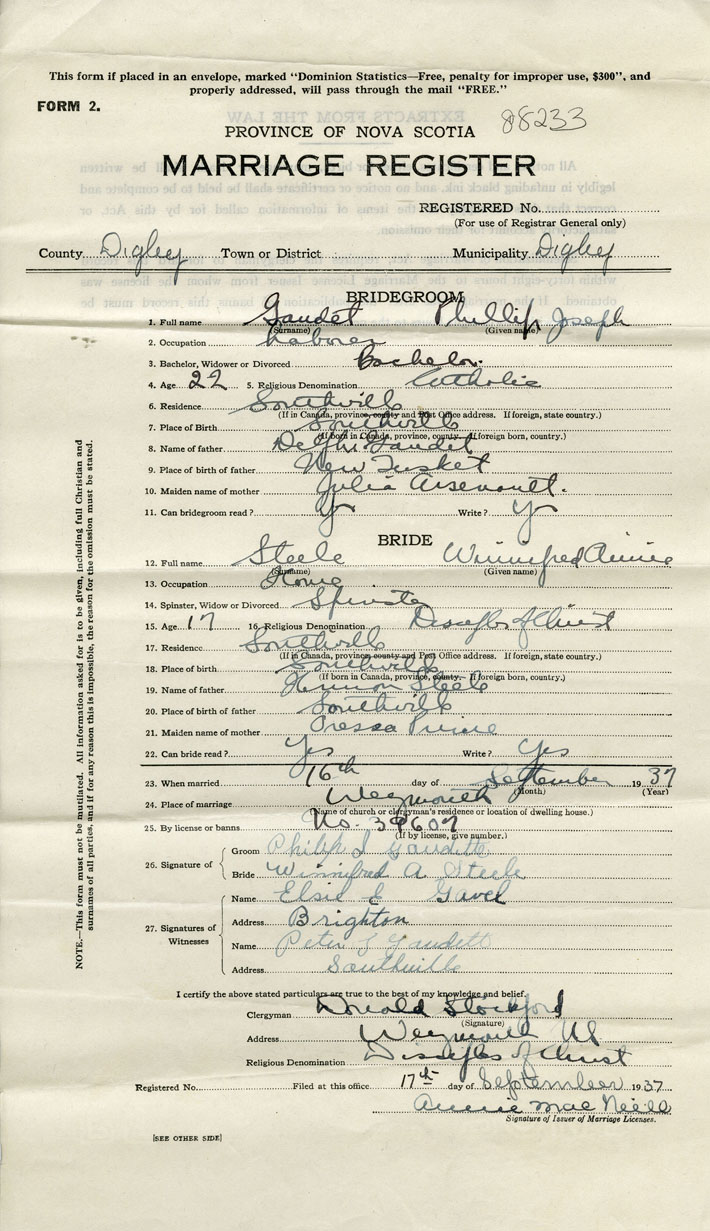 This form if placed in an envelope, marked "Dominion Statistics—Free, penalty for improper use, $300", and
properly addressed, will pass through the mail "FREE."
FORM 2.
88233
PROVINCE OF NOVA SCOTIA
MARRIAGE REGISTER
REGISTERED No.
(For use of Registrar General only)
County Digby Town or District Municipality Digby
BRIDEGROOM
1. Full name Gaudet Phillip Joseph
(Surname) (Given name)
2. Occupation Laborer
3. Bachelor, Widower or Divorced Bachelor.
4. Age 22 5. Religious Denomination Catholic
6. Residence Southville
(If in Canada, province, county and Post Office address. If foreign, state country.)
7. Place of Birth Southville
(If born in Canada, province, county. If foreign born, country.)
8. Name of father Delphi Gaudet
9. Place of birth of father New Tusket
10. Maiden name of mother Julia Arsenault.
11. Can bridegroom read? Y Write? Y
BRIDE
12. Full name Steele Winnifred Annie
(Surname) (Given name)
13. Occupation Home
14. Spinster, Widow or Divorced Spinster
15. Age 17 16. Religious Denomination Disciples of Christ
17. Residence Southville
(If in Canada, province, county and Post Office address. If foreign, state country.)
18. Place of birth Southville
(If born in Canada, province, county. If foreign born, country.)
19. Name of father Steele
20. Place of birth of father Southville
21. Maiden name of mother Pressa Prime
22. Can bride read? Yes Write? Yes
23. When married 16th day of September 1937
(Month) (Year)
24. Place of marriage Weymouth
(Name of church or clergyman's residence or location of dwelling house.)
25. By license or banns No. 39607
(If by license, give number.)
26. Signature of
Groom Philip J Gaudett
Bride Winnifred A Steele
27. Signatures of Witnesses
Name Elsie E Gavel
Address Brighton
Name Peter J Gaudett
Address Southville
I certify the above stated particulars are true to the best of my knowledge and belief.
Clergyman Donald Stockford
(Signature)
Address Weymouth NS
Religious Denomination Disciples of Christ
Registered No. Filed at this office 17th day of September 1937
Annie MacNeill
Signature of Issuer of Marriage Licenses.
[SEE OTHER SIDE]
NOTE.—This form must not be mutilated. All information asked for is to be given, including full Christian and
surnames of all parties, and if for any reason this is impossible, the reason for the omission must be stated.